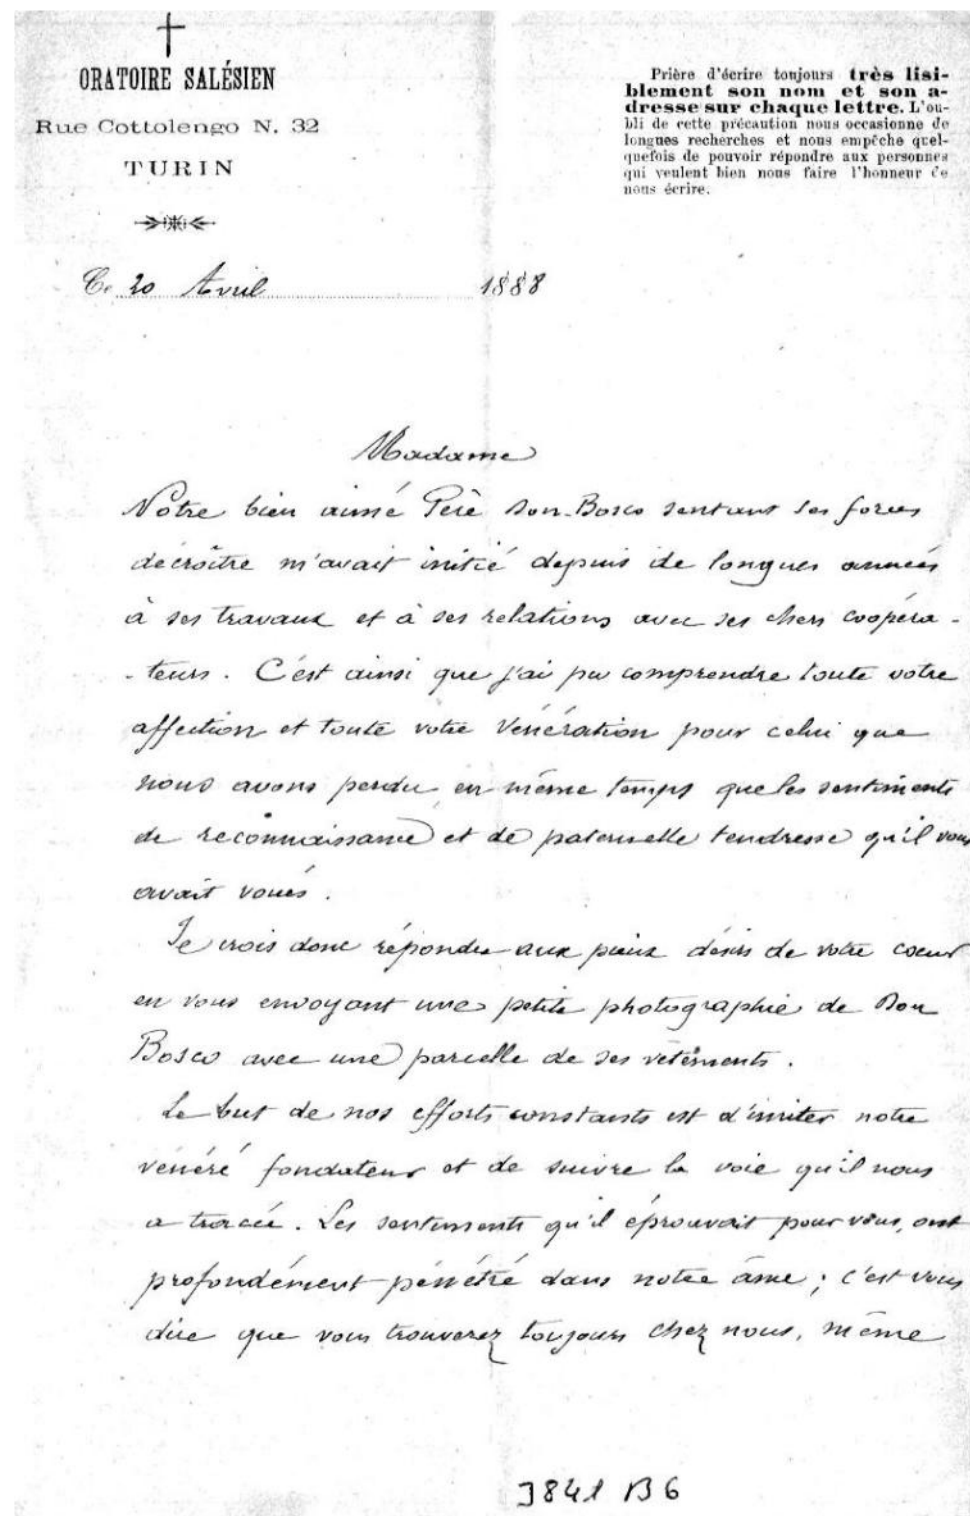 ORATOIRE SALÉSIEN
Rue Cottolengo N. 32
TURIN
Prière d'écrire toujours très lisi-
blement son nom et son a-
dresse sur chaque lettre. L'ou-
bli de cette précaution nous occasionne de
longues recherches et nous empêche quel-
quefois de pouvoir répondre aux personnes
qui veulent bien nous faire l'honneur de
nous écrire.
Ce 20 Avril 1888
Madame
Notre bien aimé Père Don Bosco sentant ses forces
décroître m'avait initié depuis de longues années
à ses travaux et à ses relations avec ses chers coopéra-
-teurs. C'est ainsi que j'ai pu comprendre toute votre
affection et toute votre vénération pour celui que
nous avons perdu en même temps que les sentiments
de reconnaissance et de paternelle tendresse qu'il vous
avait voués.
Je crois donc répondre aux pieux désirs de votre coeur
en vous envoyant une petite photographie de Don
Bosco avec une parcelle de ses vêtements.
Le but de nos efforts constants est d'imiter notre
vénéré fondateur et de suivre la voie qu'il nous
a tracée. Les sentiments qu'il éprouvait pour vous, ont
profondément pénétré dans notre âme; c'est vous
dire que vous trouverez toujours chez nous, même
3841 B6